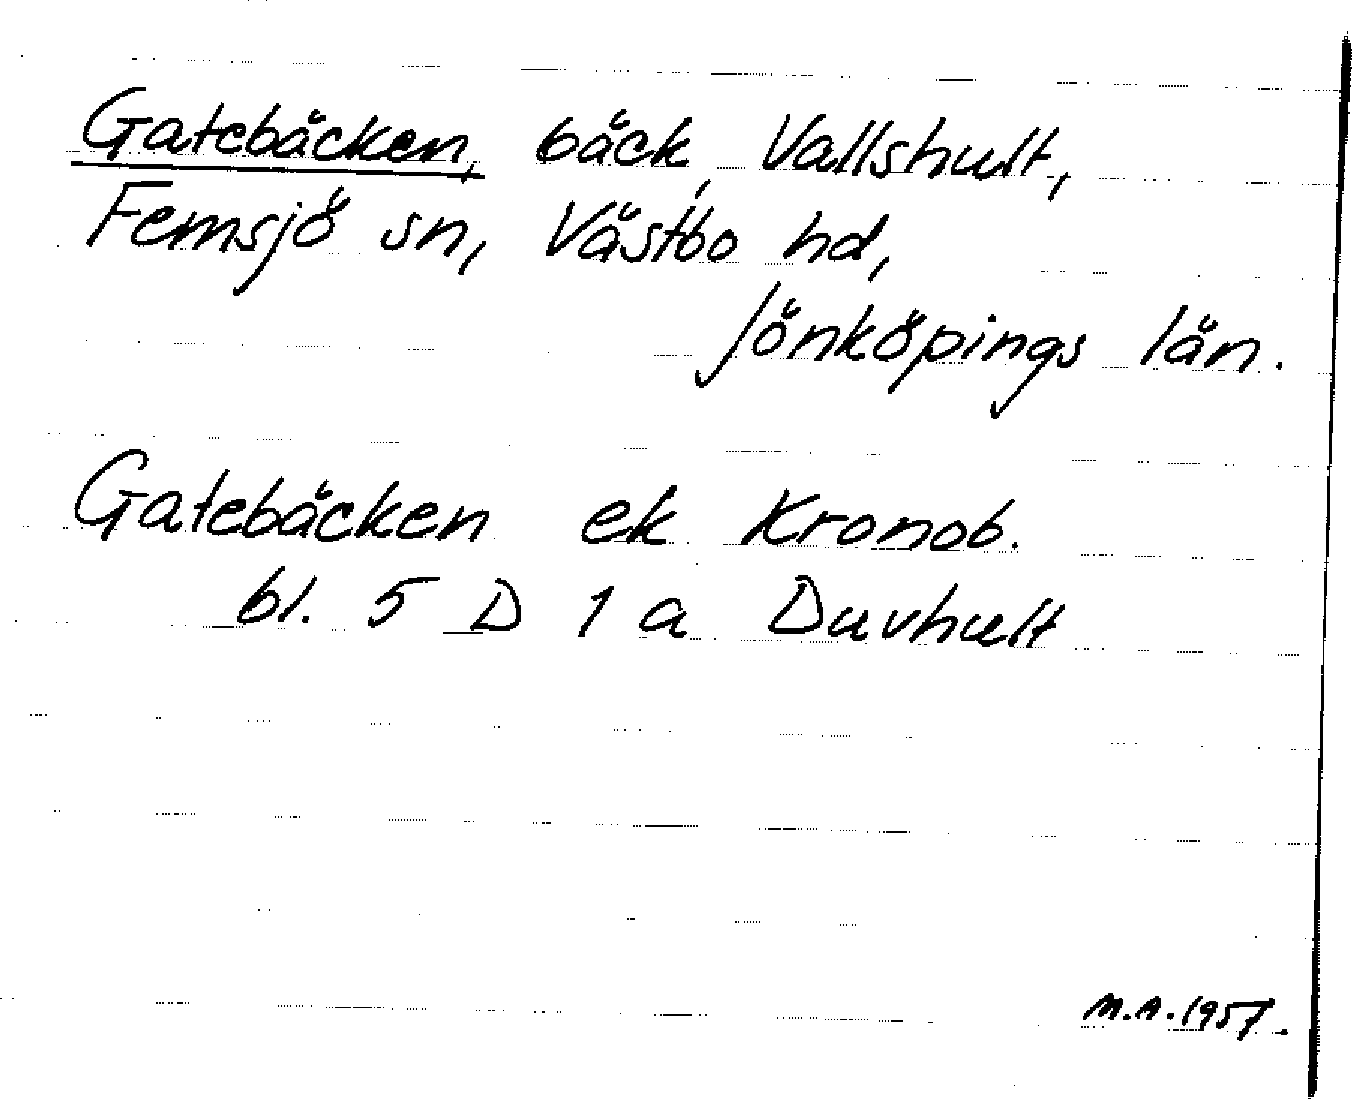 Gatebäcken, bäck, Vallshult,
Femsjö sn, Västbo hd,
Jönköpings län.
Gatebäcken ek Kronob.
bl. 5 D 1 a Duvhult
M.A. 1957.